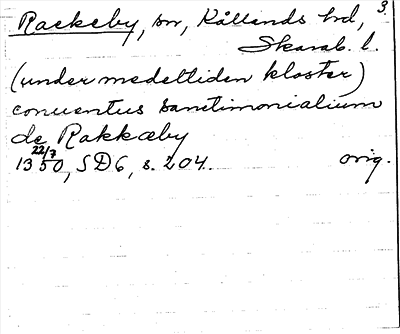 Rackeby, sn, Kållands hd, 3.
Skarab. l.
(under medeltiden kloster)
conuentus sanctimonialium
de Rakkæby
1350 22/7, SD6, s. 204. orig.